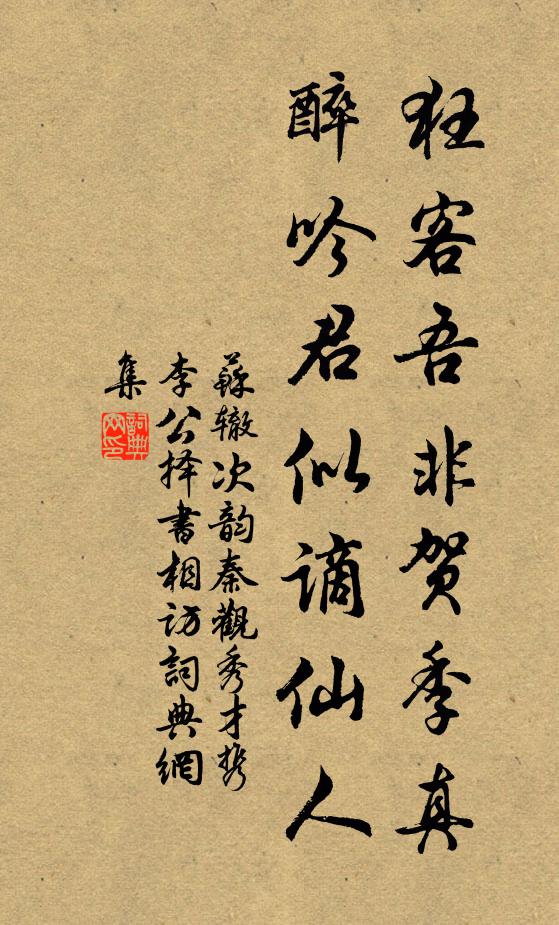 狂客吾非贺季真
醉吟君似谪仙人
蘇辙次韵秦觀秀才携
李公择書相访詞典網
集
詞典
网印